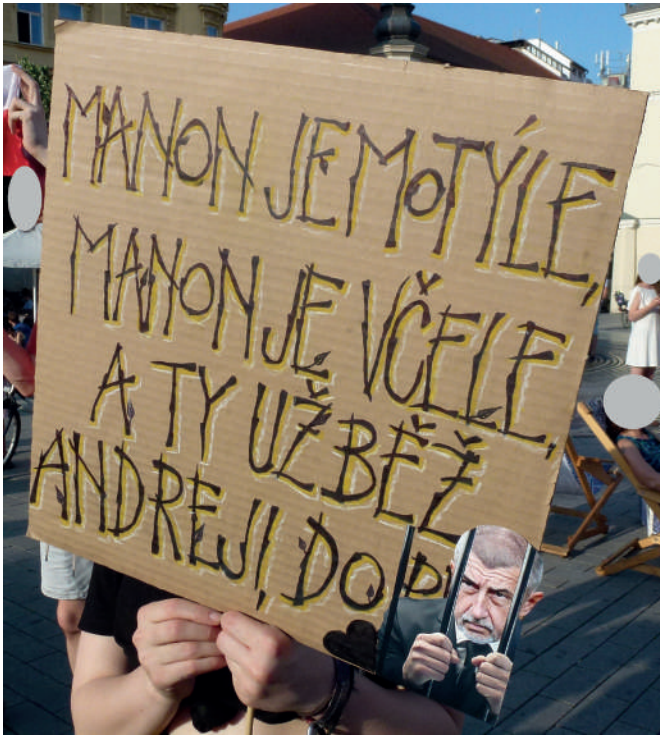 MANON JE MOTÝLE,
MANON JE VČELE,
A TY UŽ BĚŽ
ANDREJI, DO